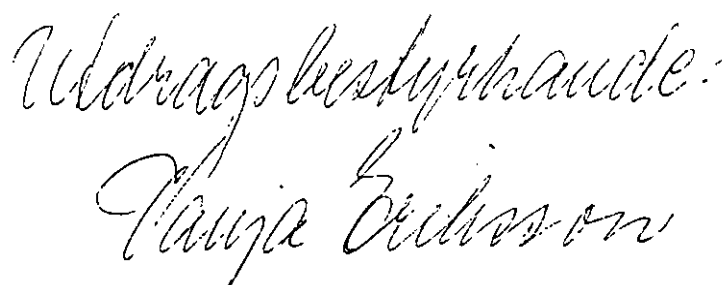 Utdragsbestyrkande:
Tanja Eriksson